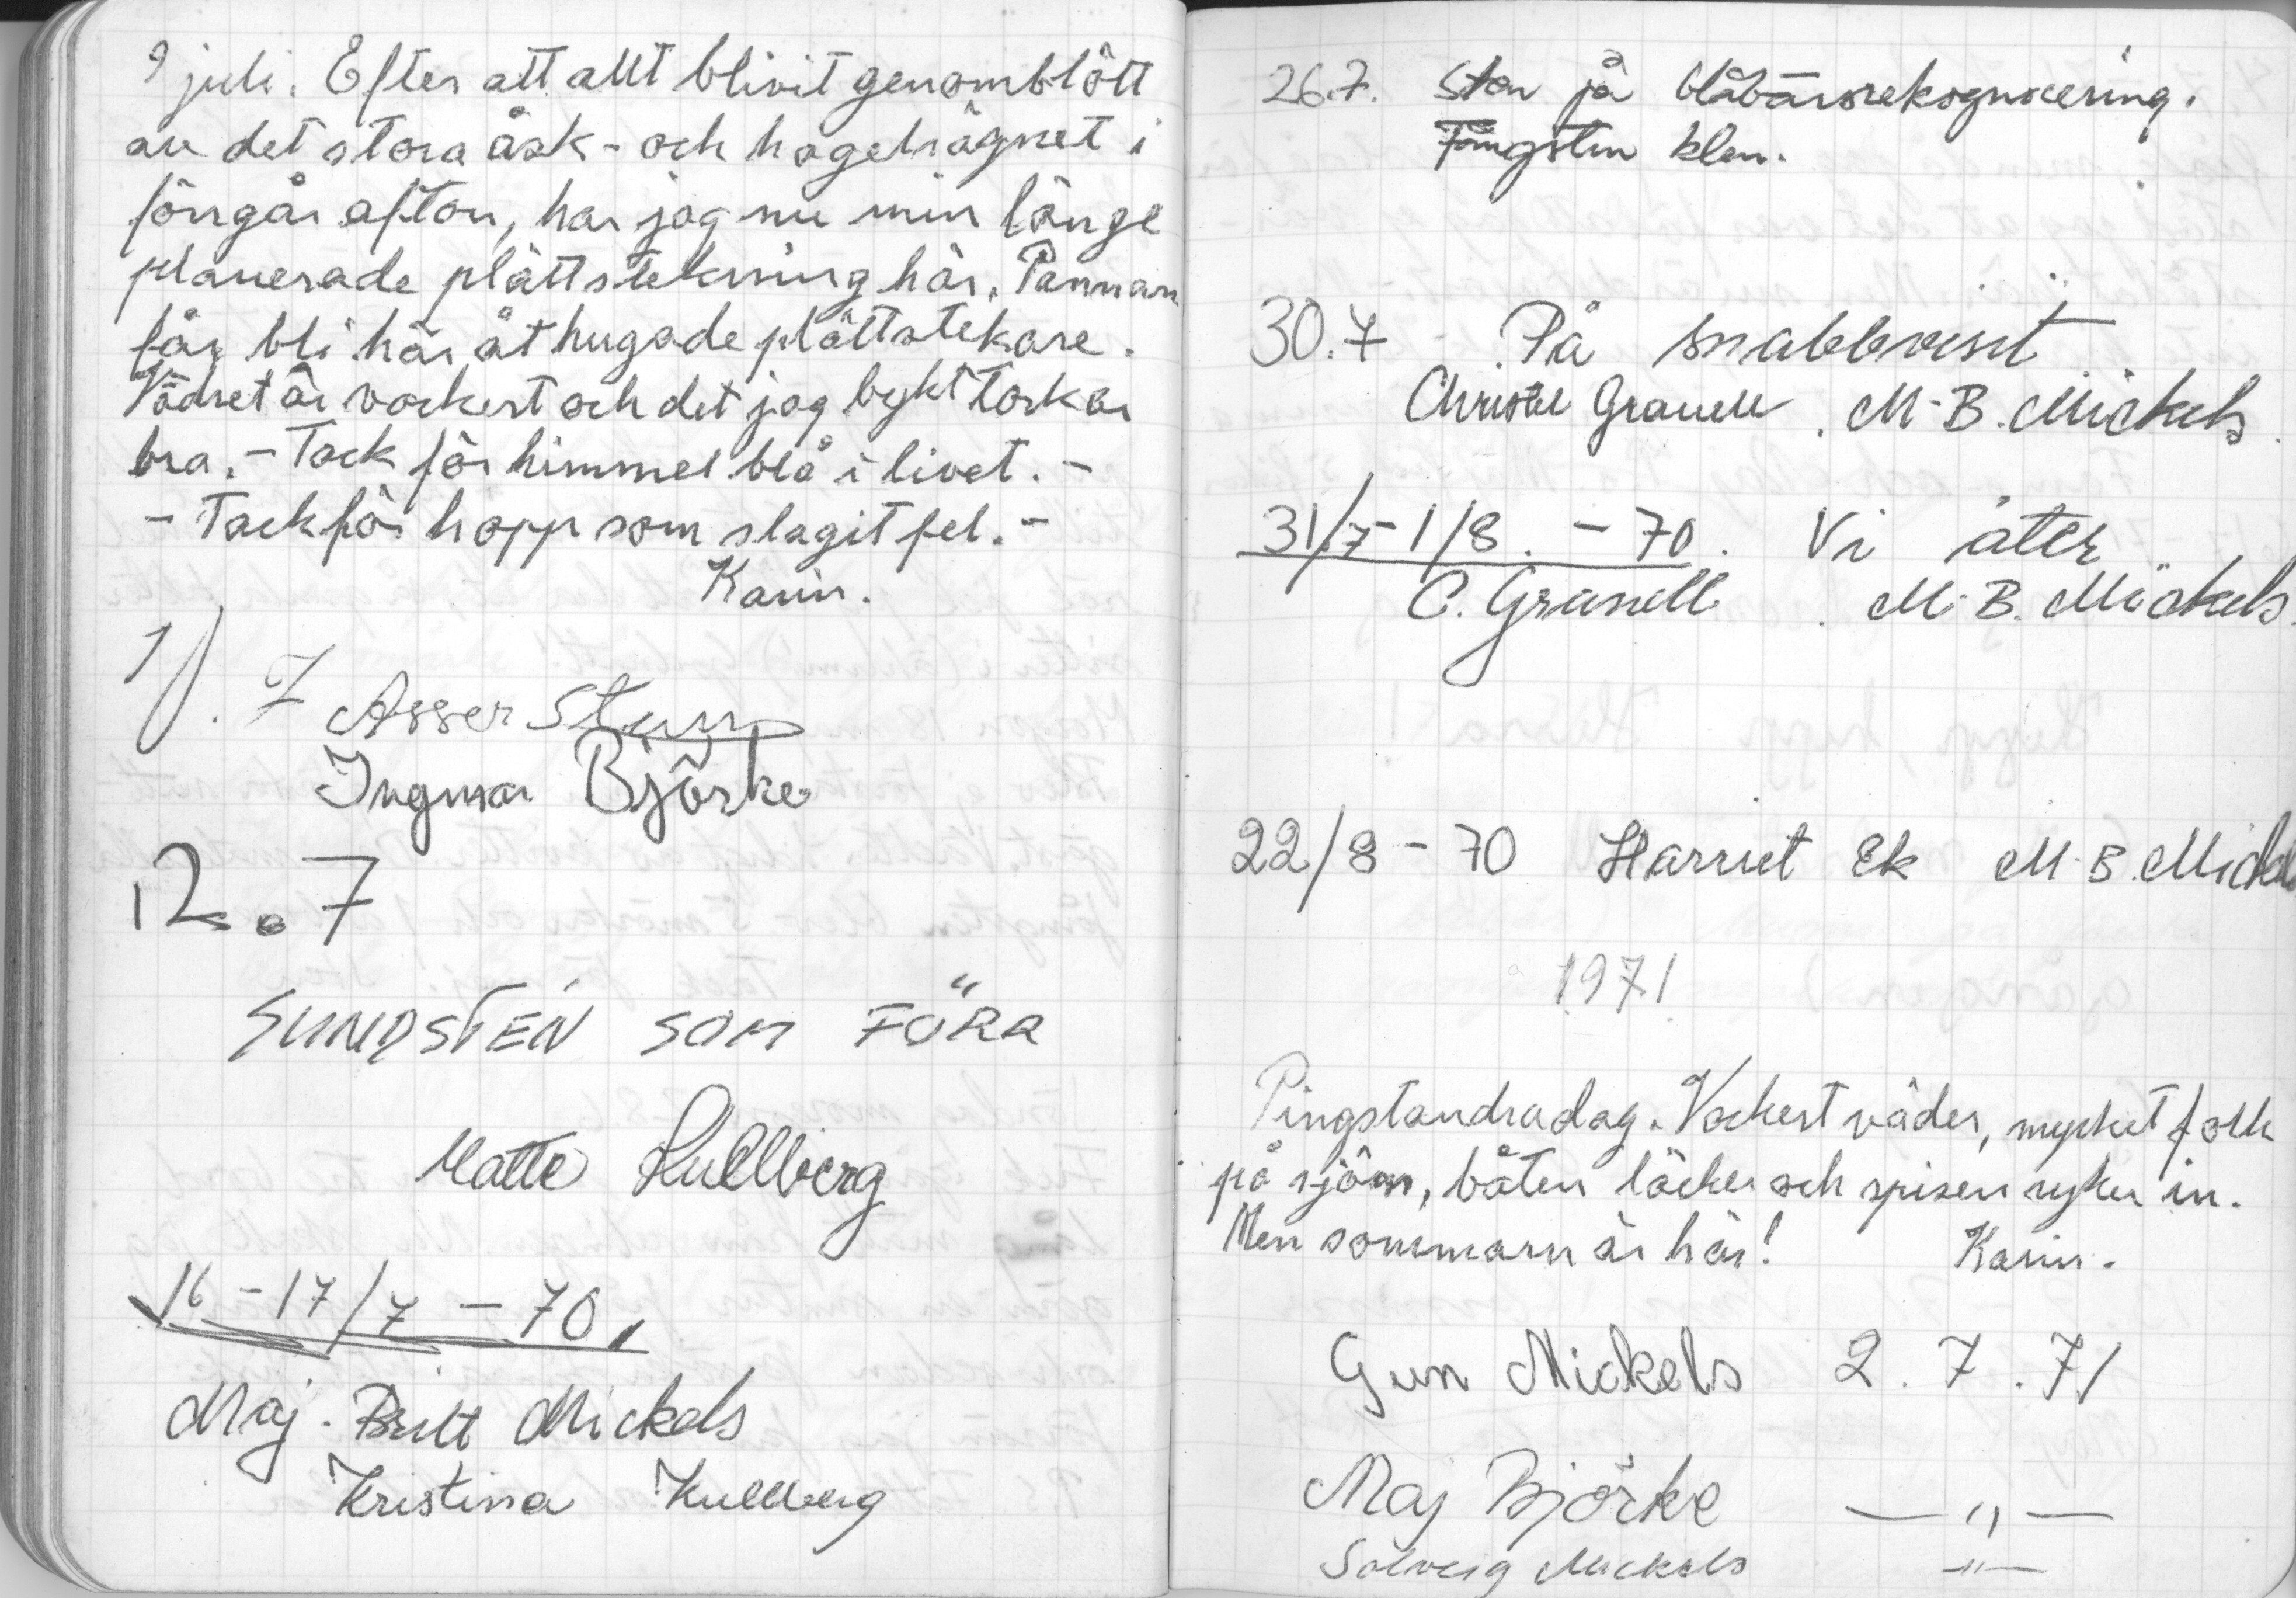 9 juli. Efter att allt blivit genomblött
av det stora åsk- och hagelrägnet i
förrgår afton, har jag nu min länge
planerade plättstekning här. Pannan
får bli här åt hugade plättstekare.
Vädret är vackert och det jag bykt torkar
bra. - Tack för himmel blå i livet. -
- Tack för hopp som slagit fel. -
Karin.
7 Asser
Ingmar Björke
12.7
SUNDSTÉN SOM FÖRR
Matte Kullberg
16-17/7 - 70.
Maj-Britt Mickels
Kristina Kullberg
26.7. Sten på blåbärsrekognocering.
Fångsten klen.
30.7 På snabbvisit
Christel Granell. M-B. Mickels.
31/7-1/8. - 70. Vi åter
C. Granell. M-B. Mickels.
22/8 - 70 Harriet Ek M-B. Mickels
1971
Pingstandradag. Vackert väder, mycket folk
på sjön, båten läcker och spisen ryker in.
Men sommarn är här! Karin.
Gun Mickels 2.7.71
Maj Björke —"—
Solveig Mickels —"—